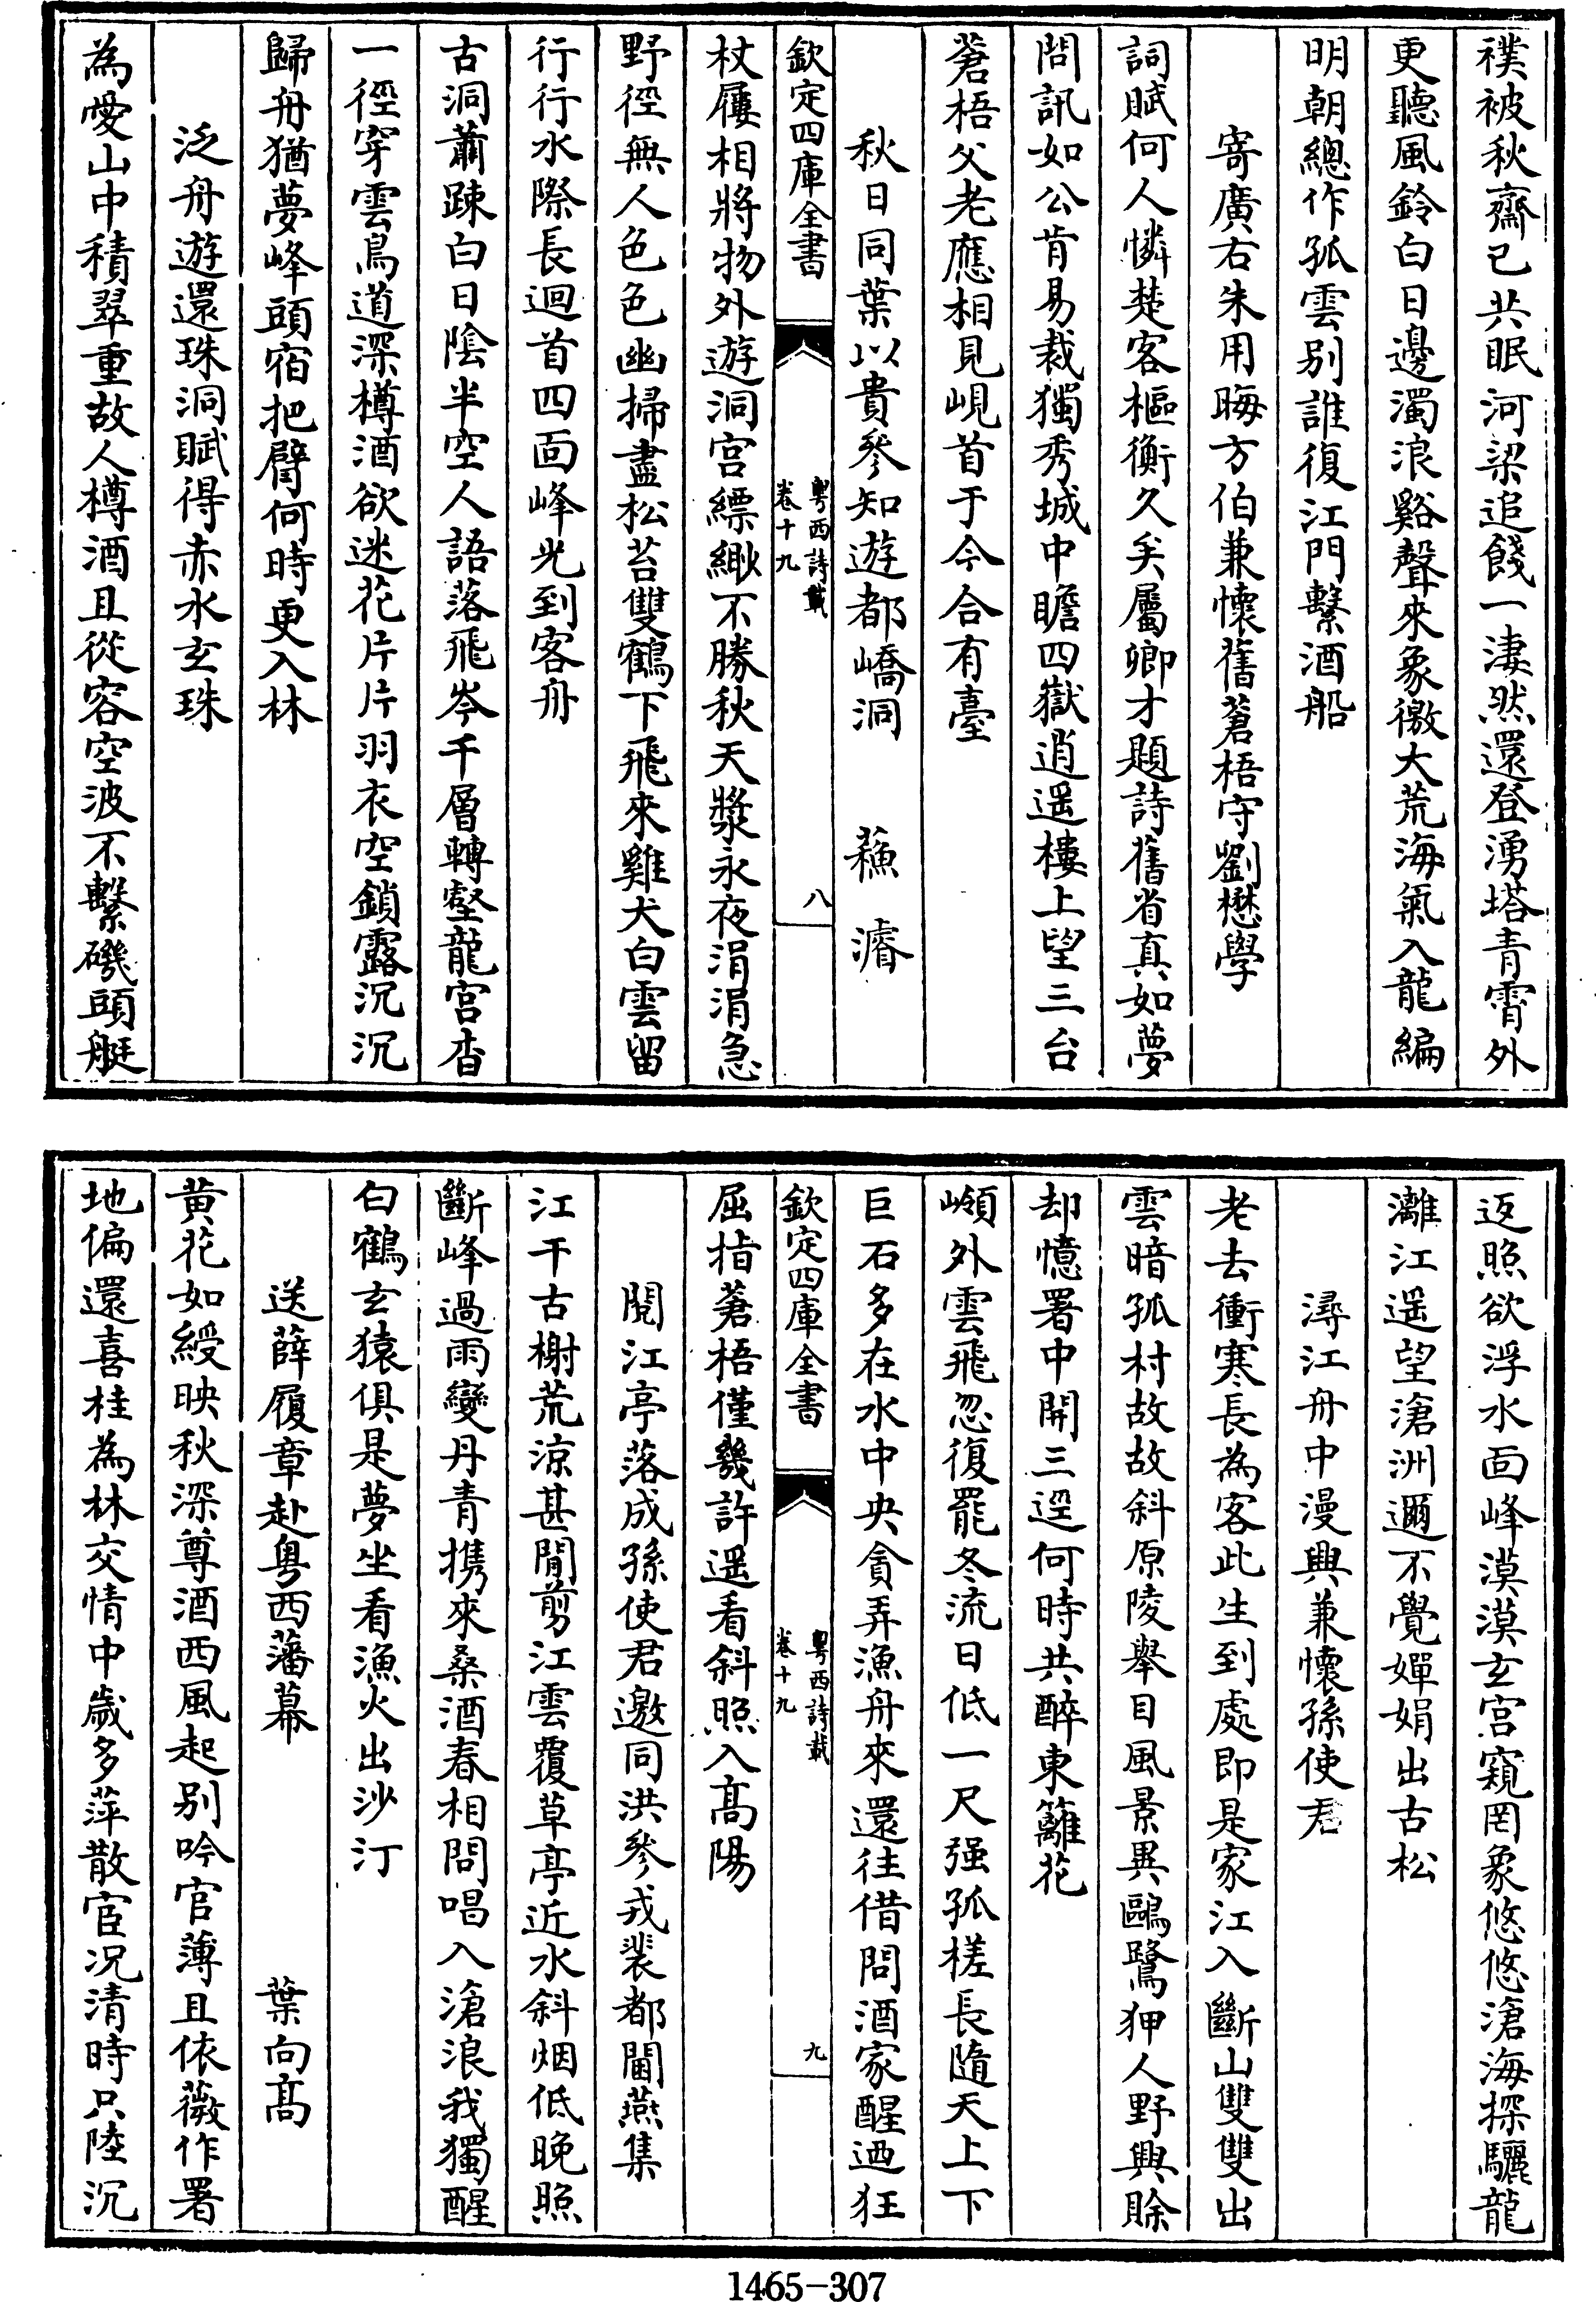 襆被秋齋已共眠河梁追餞一淒然還登湧塔青霄外
更聽風鈴白日邊濁浪谿聲來象徼大荒海氣入龍編
明朝總作孤雲别誰復江門繫酒船
寄廣右朱用晦方伯兼懷舊蒼梧守劉懋學
詞賦何人憐楚客樞衡久矣屬卿才題詩舊省真如夢
問訊如公肯易裁獨秀城中瞻四嶽逍遥樓上望三台
蒼梧父老應相見峴首于今合有臺
秋日同葉以貴參知遊都嶠洞 蘇濬
欽定四庫全書 粤西詩載 卷十九 八
杖屨相將物外遊洞宫縹緲不勝秋天漿永夜涓涓急
野徑無人色色幽掃盡松苔雙鶴下飛來雞犬白雲留
行行水際長迴首四面峰光到客舟
古洞蕭踈白日陰半空人語落飛岑千層轉壑龍宫杳
一徑穿雲鳥道深樽酒欲迷花片片羽衣空鎖露沉沉
歸舟猶夢峰頭宿把臂何時更入林
泛舟遊還珠洞賦得赤水玄珠
為愛山中積翠重故人樽酒且從容空波不繫磯頭艇
返照欲浮水面峰漠漠玄宫窺罔象悠悠滄海探驪龍
灕江遥望滄洲邇不覺嬋娟出古松
潯江舟中漫興兼懷孫使君
老去衝寒長為客此生到處即是家江入斷山雙雙出
雲暗孤村故故斜原陵舉目風景異鷗鷺狎人野興賒
却憶署中開三逕何時共醉東籬花
嶺外雲飛忽復罷冬流日低一尺强孤槎長隨天上下
巨石多在水中央貪弄漁舟來還往借問酒家醒迺狂
欽定四庫全書 粤西詩載 卷十九 九
屈指蒼梧僅幾許遥看斜照入高陽
閱江亭落成孫使君邀同洪參戎裴都閫燕集
江干古榭荒涼甚閒剪江雲覆草亭近水斜烟低晚照
斷峰過雨變丹青携來桑酒春相問唱入滄浪我獨醒
白鶴玄猿俱是夢坐看漁火出沙汀
送薛履章赴粤西藩幕 葉向高
黄花如綬映秋深尊酒西風起别吟官薄且依薇作署
地偏還喜桂為林交情中歲多萍散宦况清時只陸沉
1465-307